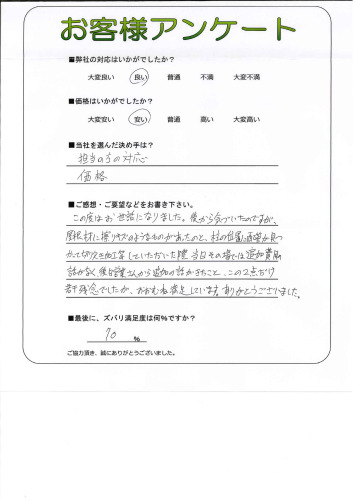 お客様アンケート
■弊社の対応はいかがでしたか?
大変良い 良い 普通 不満 大変不満
■価格はいかがでしたか?
大変安い 安い 普通 高い 大変高い
■当社を選んだ決め手は?
担当の方の対応
価格
■ご感想・ご要望などをお書き下さい。
この度はお世話になりました。後から気づいたのですが、
屋根材に擦りキズのようなものがあったのと、柱の位置
かって切欠き加工をしていただいた際、当日その場では追加費用
話がなく後日営業さんから追加の話がきたこと、この2点だけ
若干残念でしたが、おおむね満足しています。ありがとうございました。
■最後に、ズバリ満足度は何%ですか?
90 %
ご協力頂き、誠にありがとうございました。